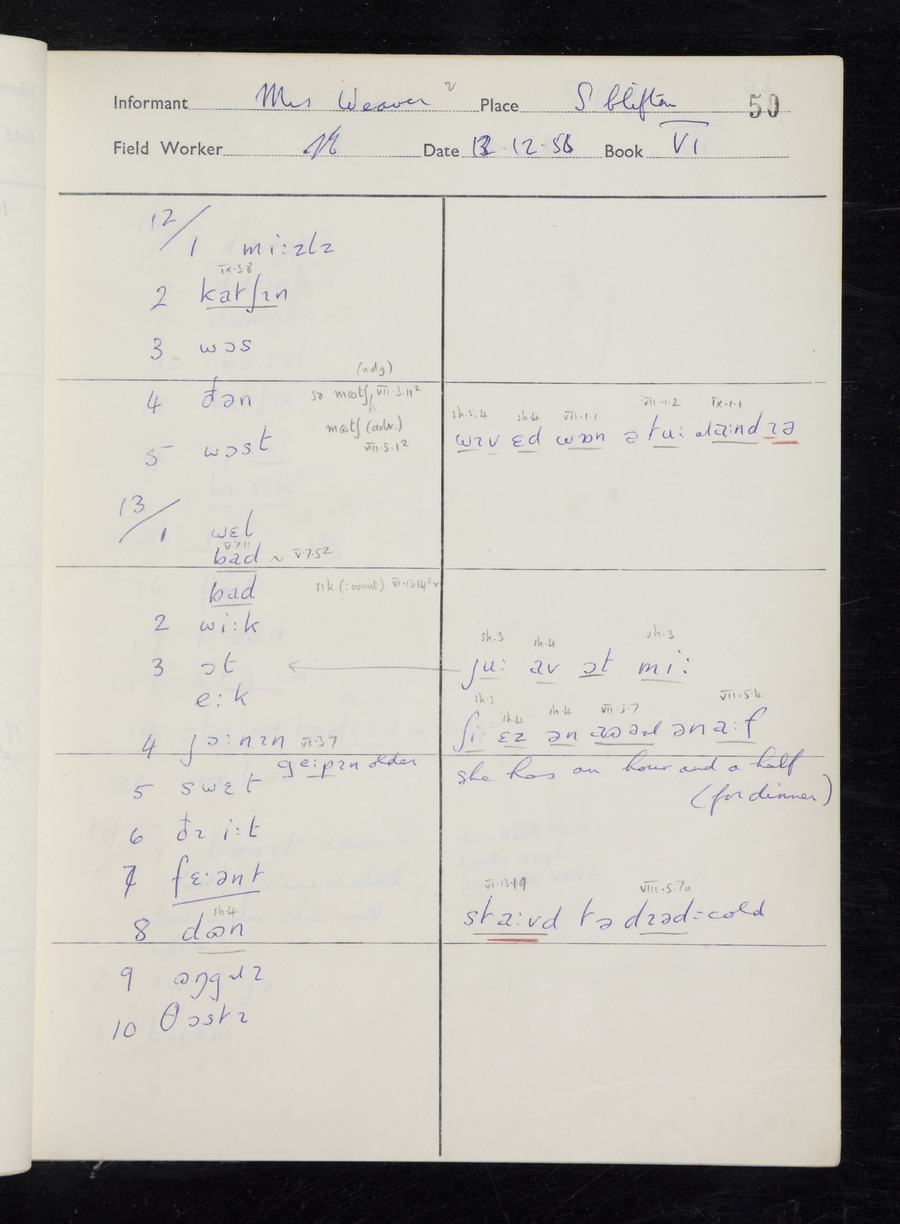 Informant Mrs Weaver Place S Clifton 50
Field Worker Date 12-12-56 Book VI
12/
1 mi:zlz
IX.3.8
2 katʃɪn
3 wɔs
(n.dg)
4 ðən so mɷtʃ VII.3.11²
mɷtʃ (adv.)
VIII.5.1²
5 wɔst
sh.3,4 sh.4 VII.1.1 VII.1.2 IX.1.1
wɪv ɛd wɒn ə tu: ɪə
13/
1 wɛl
V.7.11
bad ~ V.7.5²
bad sɪk (:vomit) VI.13.14²
2 wi:k
sh.3 sh.4 sh.3
3 ɔt ← ju: av ɔt mi:
e:k
sh.3 sh.4 sh.4 VII.5.7 VII.5.4
4 jɔ:nɪn VII.3.7 ʃi: ɛz ən ən a:f
ge:pɪn older
she has an hour and a half
(for dinner)
5 swɛt
6 ðɪ i:t
7 fɛ:ənt
VI.13.19 VIII.5.7n
sta:vd tə dɪəd = cold
sh.4
8 dɷn
9 ɷŋgɹɪ
10 θɔstɪ